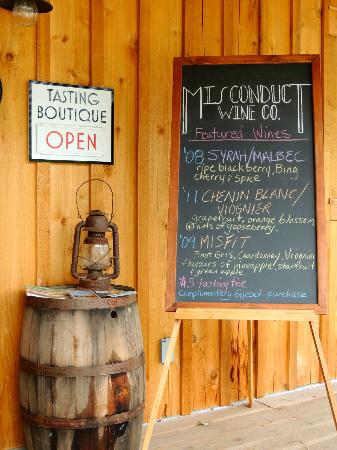 TASTING
BOUTIQUE
OPEN
MISCONDUCT
WINE CO.
Featured Wines
'08 SYRAH/MALBEC
ripe blackberry, Bing
cherry & spice
'11 CHENIN BLANC/
VIOGNIER
grapefruit, orange blossom
hints of gooseberry.
'09 MISFIT
Pinot Gris, Chardonnay, Viognier
flavours of pineapple, starfruit
& green apple
$3 tasting fee
Complimentary purchase